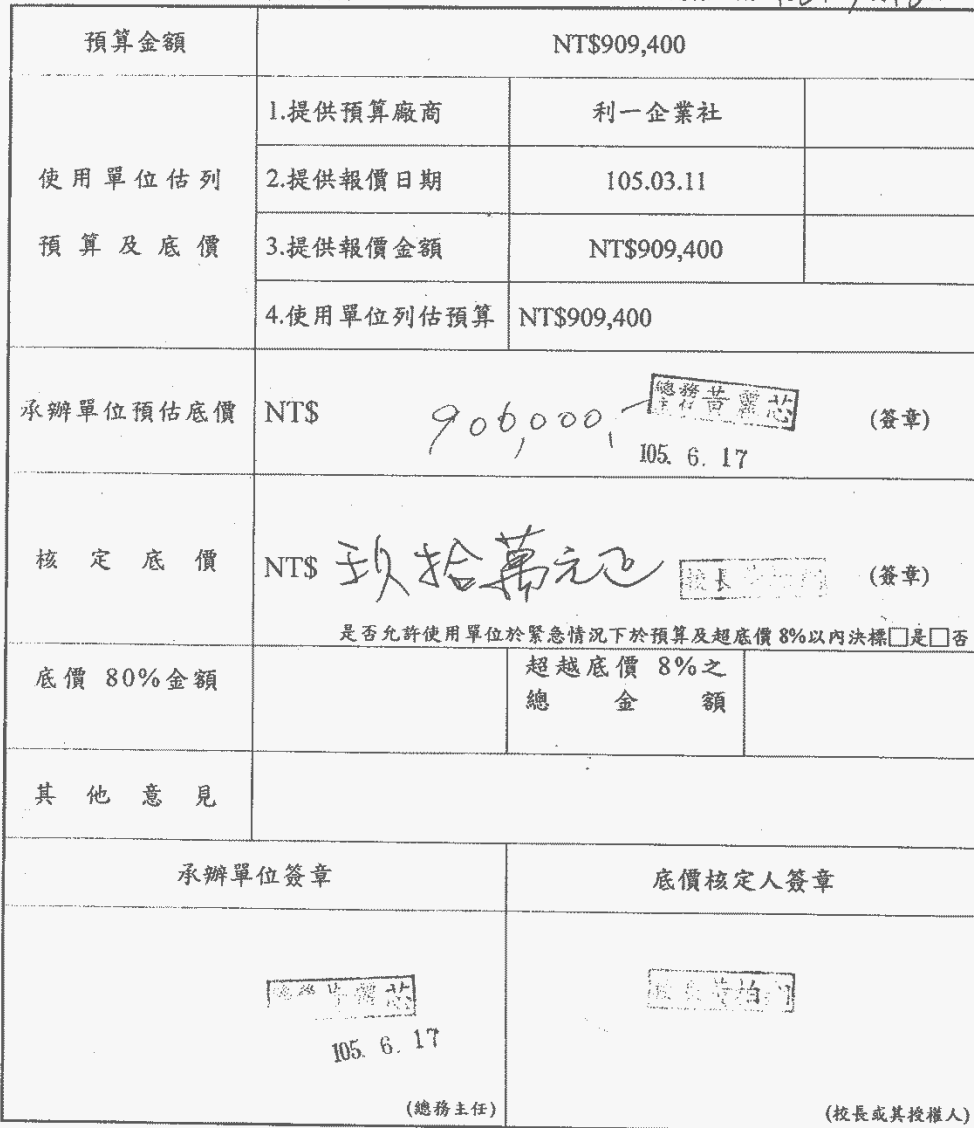 預算金額 NT$909,400
使用單位估列
預算及底價
1.提供預算廠商 利一企業社
2.提供報價日期 105.03.11
3.提供報價金額 NT$909,400
4.使用單位列估預算 NT$909,400
承辦單位預估底價 NT$ 906,000, 總務主任 黃麗芯 (簽章)
105. 6. 17
核定底價 NT$ 玖拾萬元正 校長 (簽章)
是否允許使用單位於緊急情況下於預算及超底價 8%以內決標□是□否
底價 80%金額 超越底價 8%之
總金額
其他意見
承辦單位簽章 底價核定人簽章
105. 6. 17
(總務主任) (校長或其授權人)